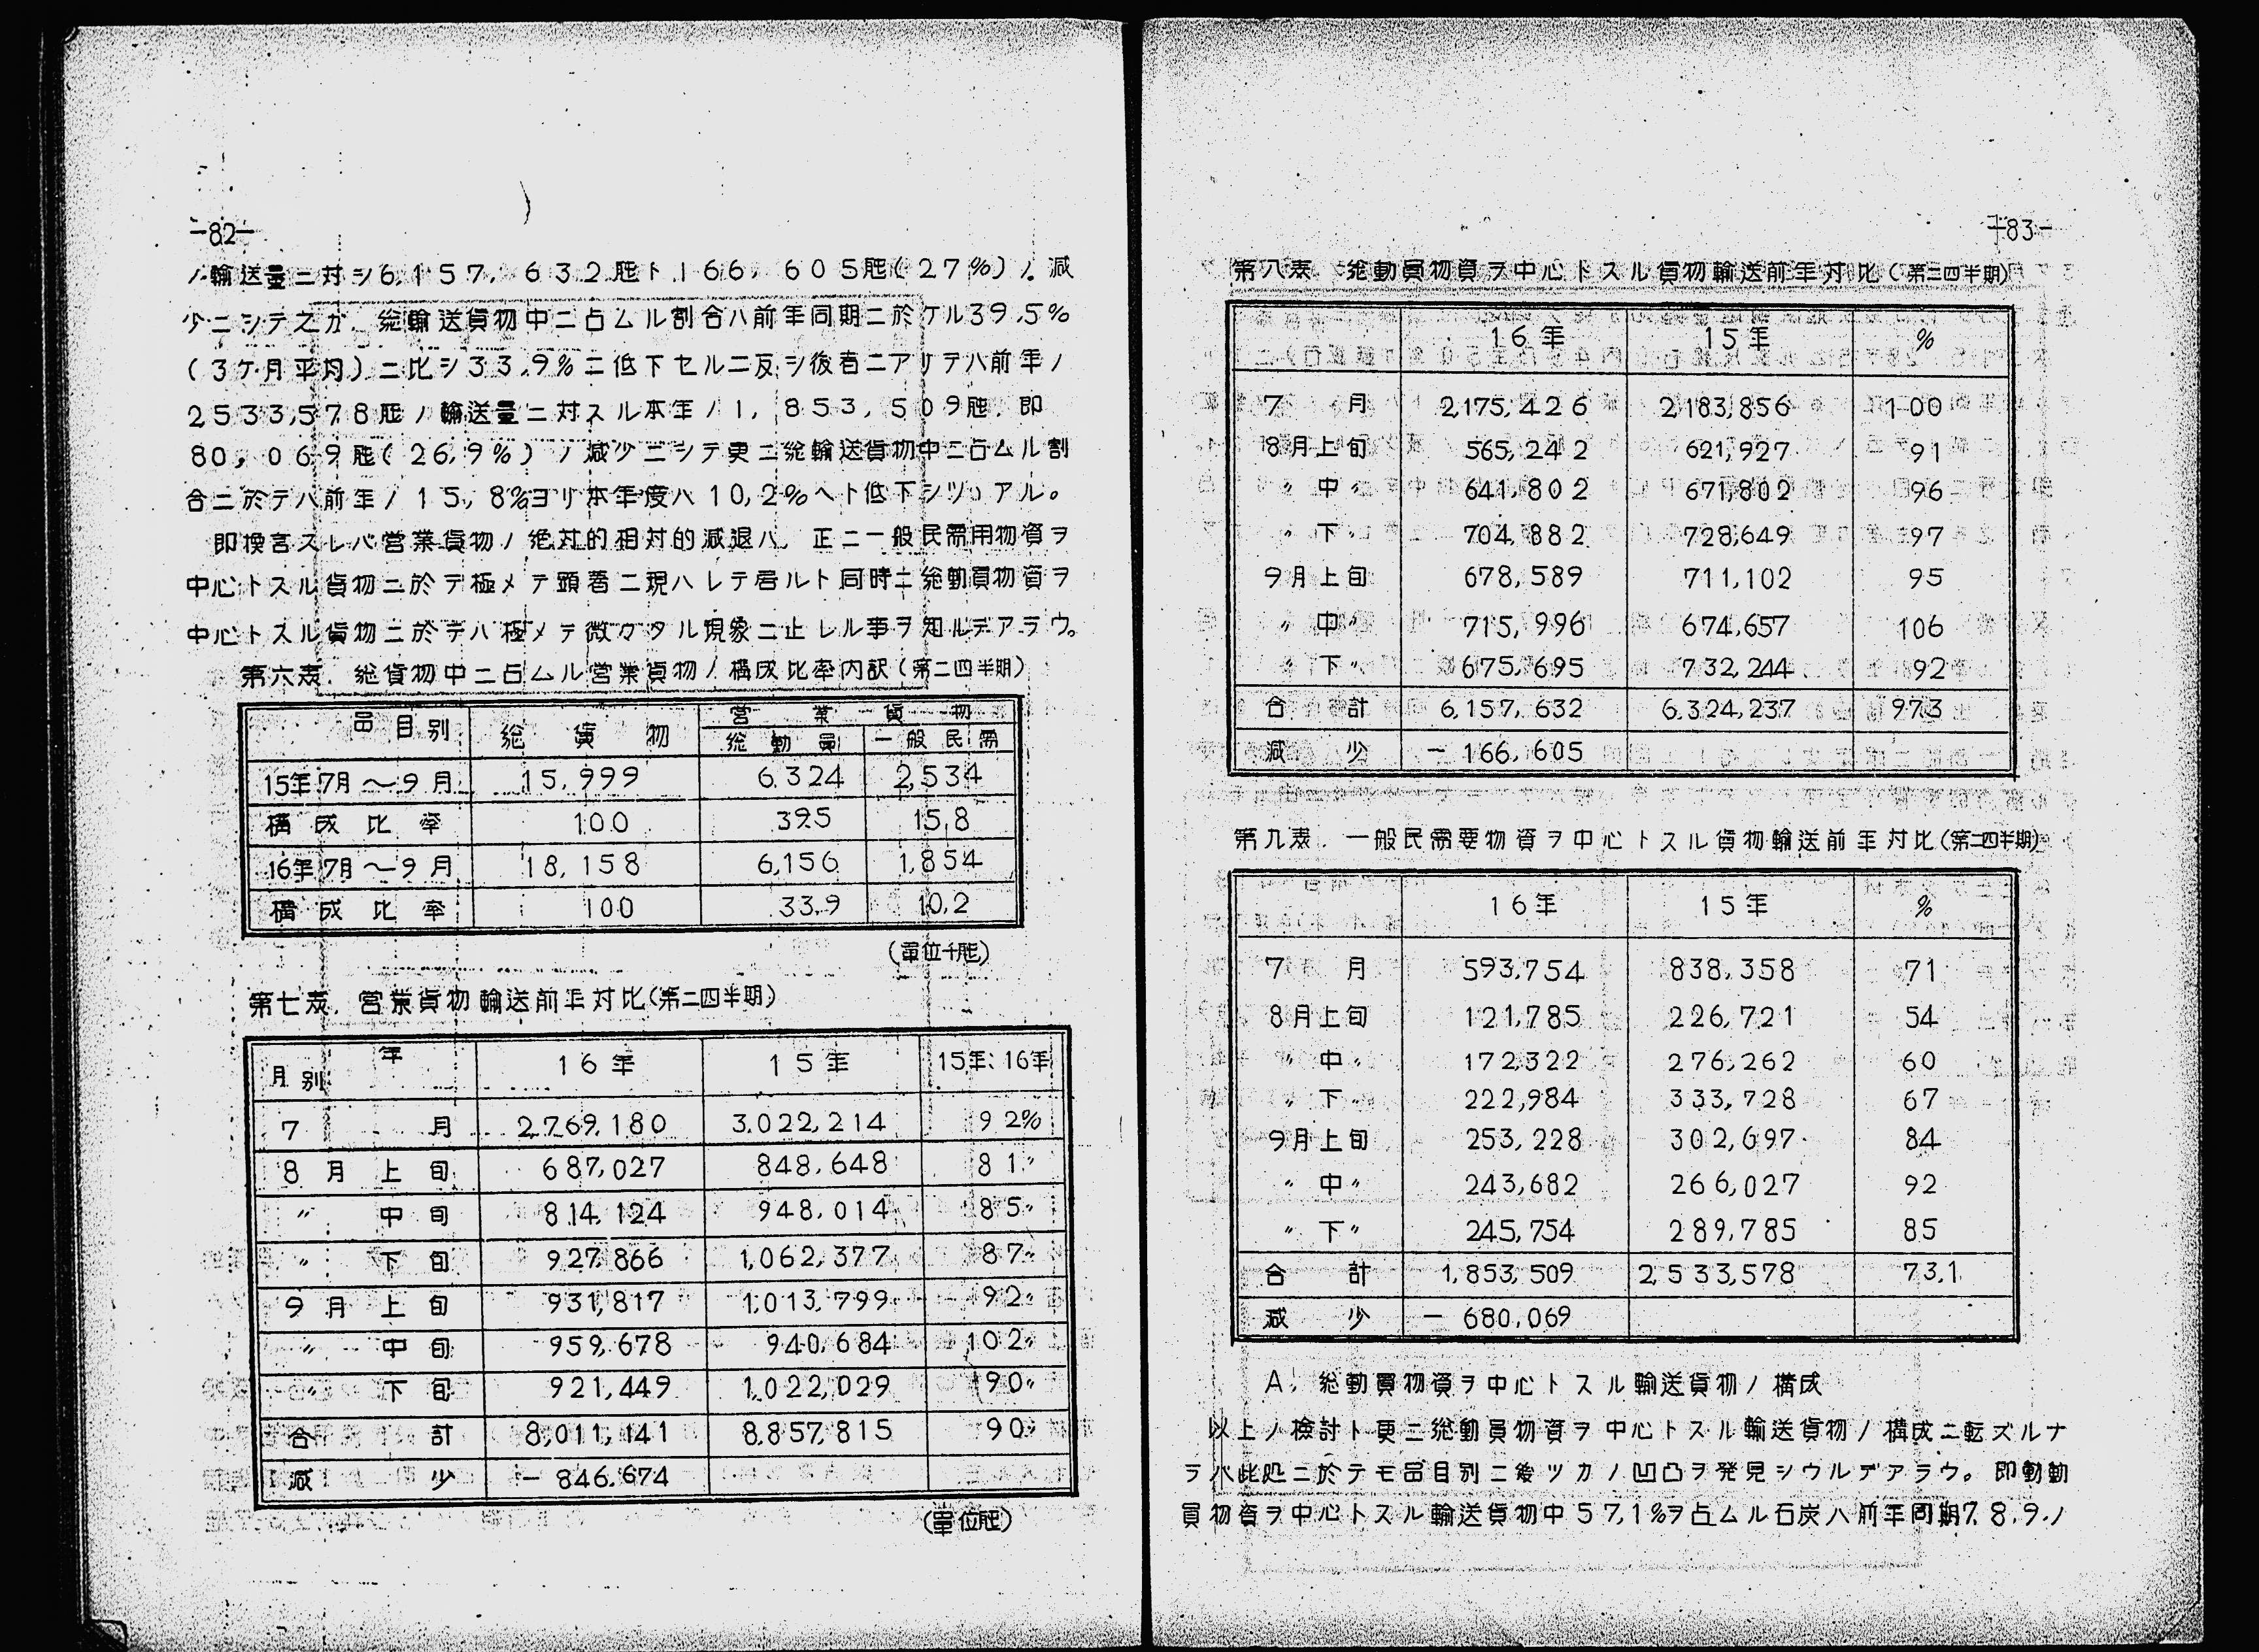 -82-
ノ輸送量ニ対シ6,157,632瓲ト166,605瓲(27%)ノ減
少ニシテ之ガ、総輸送貨物中ニ占ムル割合ハ前年同期ニ於ケル39.5%
(3ケ月平均)ニ比シ33.9%ニ低下セルニ反シ後者ニアリテハ前年ノ
2533,578瓲ノ輸送量ニ対スル本年ノ1,853,509瓲、即
80,069瓲(26,9%)ノ減少ニシテ更ニ総輸送貨物中ニ占ムル割
合ニ於テハ前年ノ15,8%ヨリ本年度ハ10,2%ヘト低下シツヽアル。
即換言スレバ営業貨物ノ絶対的相対的減退ハ、正ニ一般民需用物資ヲ
中心トスル貨物ニ於テ極メテ顕著ニ現ハレテ居ルト同時ニ総動員物資ヲ
中心トスル貨物ニ於テハ極メテ微々タル現象ニ止レル事ヲ知ルデアラウ。
第六表. 総貨物中ニ占ムル営業貨物ノ構成比率内訳(第二四半期)
品目別 総貨物 営業貨物
総動員 一般民需
15年7月〜9月 15,999 6.324 2,534
構成比率 100 39.5 15,8
16年7月〜9月 18,158 6,156 1,854
構成比率 100 33.9 10,2
(単位千瓲)
第七表. 営業貨物輸送前年対比(第二四半期)
年
月別 16年 15年 15年:16年
7月 2,769,180 3.022,214 92%
8月上旬 687,027 848,648 81〃
〃中旬 814,124 948,014 85〃
〃下旬 927,866 1,062,377 87〃
9月上旬 931,817 1,013,799 92〃
〃中旬 959,678 940,684 102〃
〃下旬 921,449 1,022,029 90〃
合計 8,011,141 8,857,815 90〃
減少 -846,674
(単位瓲)
-83-
第八表. 総動員物資ヲ中心トスル貨物輸送前年対比(第二四半期)
16年 15年 %
7月 2,175,426 2,183,856 100
8月上旬 565,242 621,927 91
〃中〃 641,802 671,802 96
〃下〃 704,882 728,649 97
9月上旬 678,589 711,102 95
〃中〃 715,996 674,657 106
〃下〃 675,695 732,244 92
合計 6,157,632 6,324,237 973
減少 -166,605
第九表. 一般民需要物資ヲ中心トスル貨物輸送前年対比(第二四半期)
16年 15年 %
7月 593,754 838,358 71
8月上旬 121,785 226,721 54
〃中〃 172,322 276,262 60
〃下〃 222,984 333,728 67
9月上旬 253,228 302,697 84
〃中〃 243,682 266,027 92
〃下〃 245,754 289,785 85
合計 1,853,509 2,533,578 73.1
減少 -680,069
A, 総動員物資ヲ中心トスル輸送貨物ノ構成
以上ノ検討ト更ニ総動員物資ヲ中心トスル輸送貨物ノ構成ニ転ズルナ
ラバ此処ニ於テモ品目別ニ幾ツカノ凹凸ヲ発見シウルデアラウ。即動動
員物資ヲ中心トスル輸送貨物中57,1%ヲ占ムル石炭ハ前年同期7.8.9.ノ